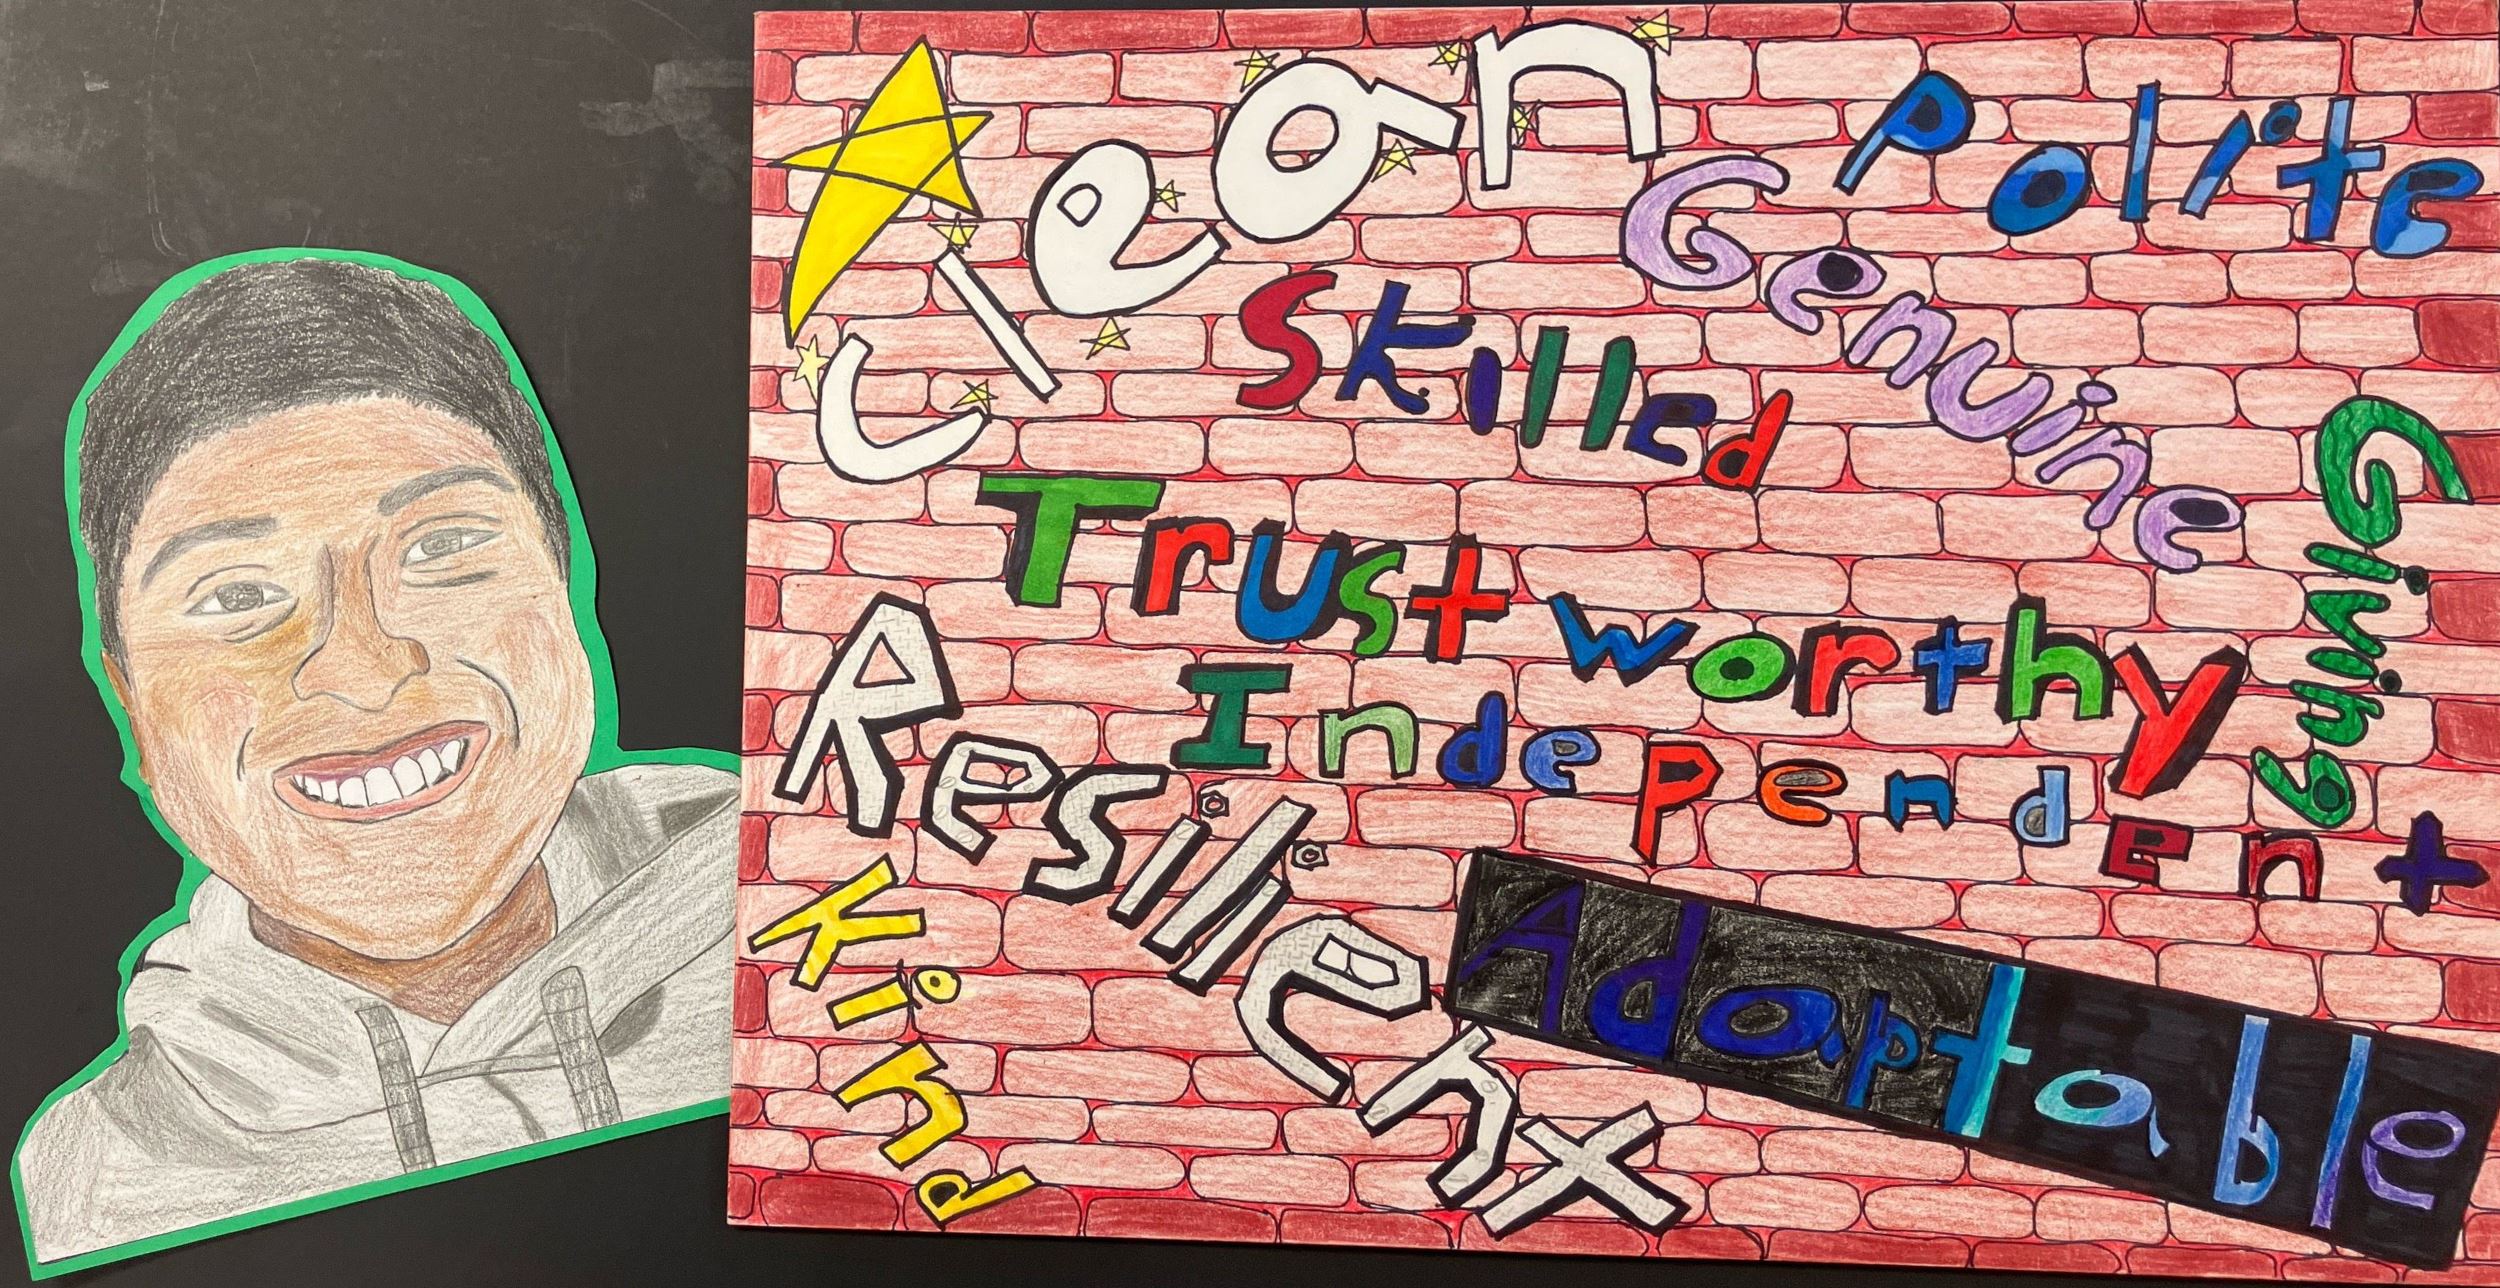 Clean
Polite
Genuine
Skilled
Giving
Trustworthy
Independent
Resilient
Adaptable
Kind